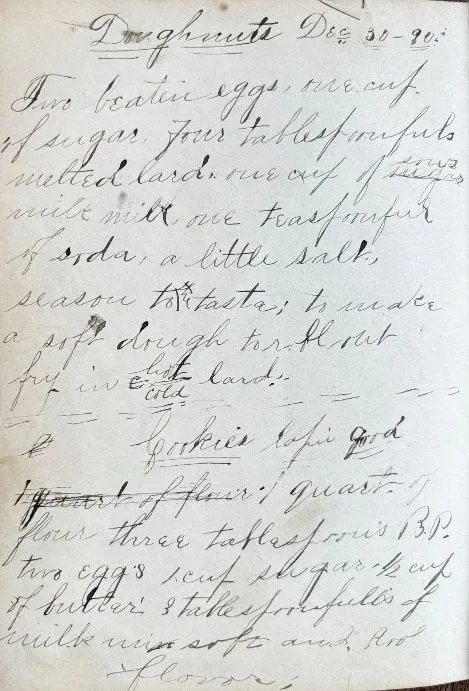 Doughnuts Dec 30-90.
Two beaten eggs, one cup.
of sugar. Four tablespoonfuls
melted lard. one cup of sour
milk milk one teaspoonful
of soda, a little salt,
season to tasta; to make
a soft dough to roll out
fry in hot cold lard.
Cookies good
1 quart of flour 1 quart. of
flour three tablespoons B.P.
two eggs 1 cup sugar. 1/2 cup
of butter 3 tablespoonfulls of
milk mix soft and. Rool
flovor;